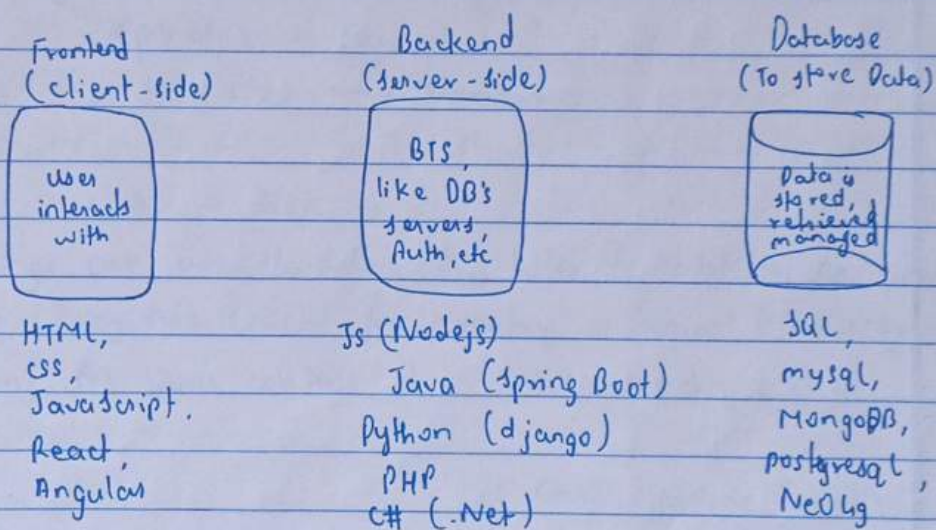 Frontend
(client-side)
user
interacts
with
HTML,
CSS,
JavaScript,
React,
Angular
Backend
(server-side)
BTS,
like DB's
servers,
Auth, etc
Js (Nodejs)
Java (Spring Boot)
Python (django)
PHP
C# (.Net)
Database
(To store Data)
Data is
stored,
retrieving,
managed
SQL,
mysql,
MongoDB,
postgresql,
NeO4g